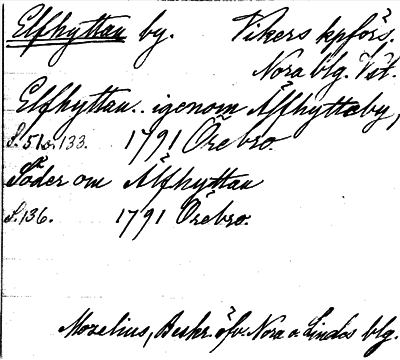 Elfhyttan by. Vikers kpförs.
Nora blg. Vst.
Elfhyttan.. igenom Älfhyttæby,
S. 51 o. 133. 1791 Örebro.
Söder om Älfhyttan
S. 136. 1791 Örebro.
Mozelius, Beskr. öfv. Nora o. Lindes blg.